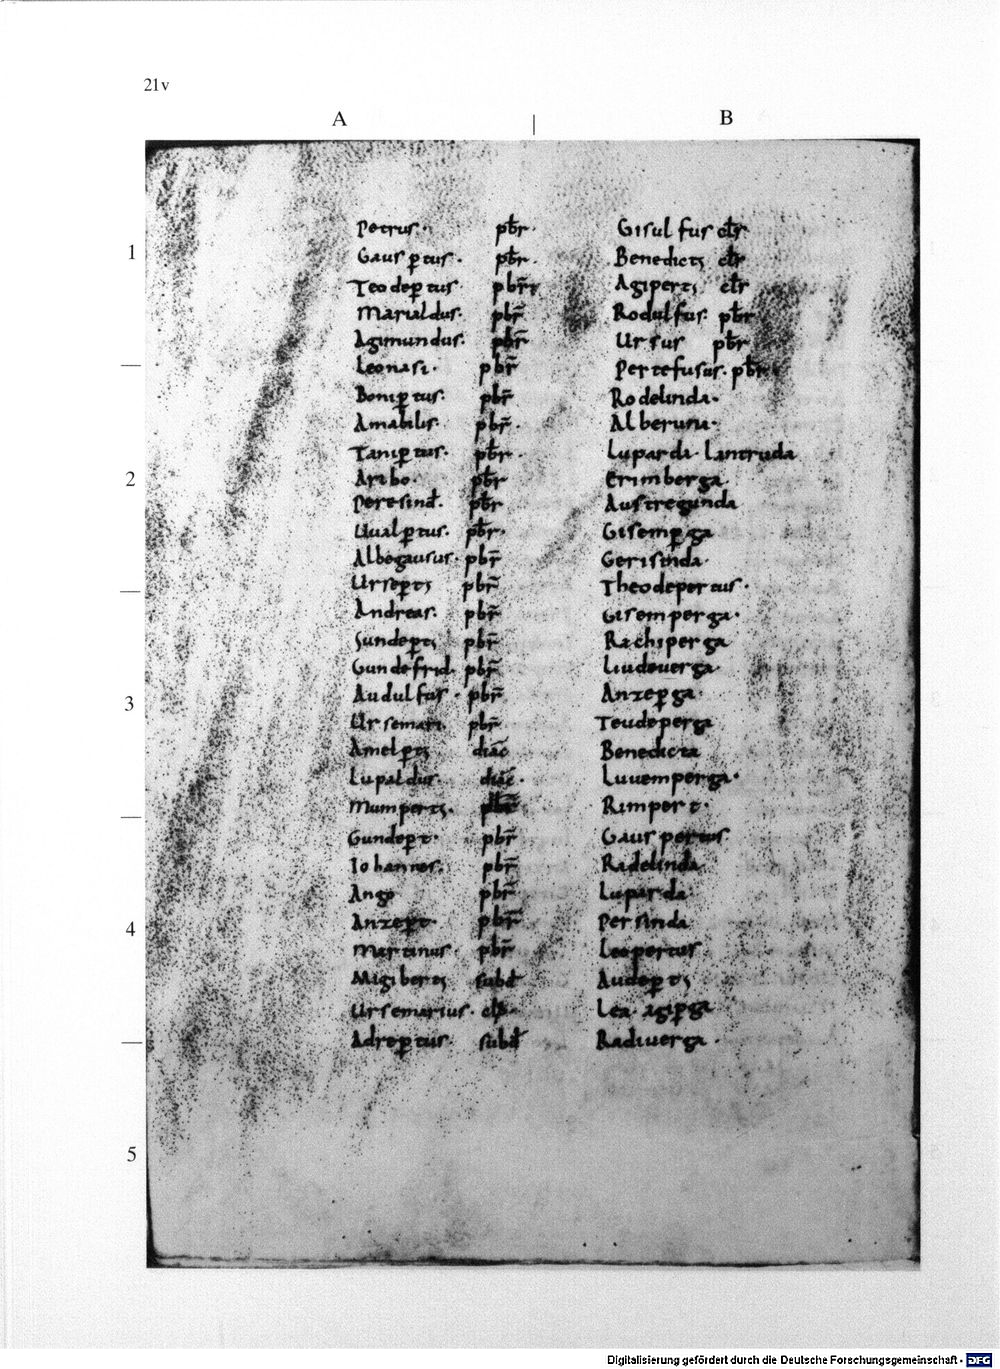 21v
A
B
1
2
3
4
5
Petrus · pbr ·
Gausꝑtus · pbr ·
Teodeꝑtus · pbr
Marialdus · pbr
Agimundus · pbr
Leonasi · pbr
Boniꝑtus · pbr
Amabilis · pbr ·
Taniꝑtus · pbr ·
Aribo · pbr
Peresind pbr
Uualꝑtus · pbr ·
Albegausus · pbr
Urseꝑtꝫ pbr
Andreas · pbr
Sundeꝑtꝫ pbr
Gundefrid · pbr
Audulfus · pbr
Ursemari pbr
Amelꝑtꝫ diac
Lupaldus · diac ·
Mumpertꝫ · pbr
Gundeꝑt · pbr
Iohannes · pbr
Ango pbr
Anzeꝑt pbr
Martinus · pbr
Migibertꝫ subd
Ursemarius ·
Adreꝑtus · subd
Gisulfus clr
Benedictꝫ clr
Agipertꝫ clr
Rodulfus · pbr
Ursus pbr
Pertefusus · pbr
Rodelinda ·
Alberuni ·
Luparda · Lantruda
Erimberga
Austregunda
Gisemꝑga
Gerisinda ·
Theodepertus ·
Gisemperga ·
Rachiperga
Liudeuerga
Anzeꝑga ·
Teudeperga
Benedicta
Luuemperga ·
Rimpert ·
Gauspertus
Radelinda
Luparda
Persinda
Leopertus
Audeꝑtꝫ
Lea · Agiꝑga
Radiuerga ·
Digitalisierung gefördert durch die Deutsche Forschungsgemeinschaft - DFG